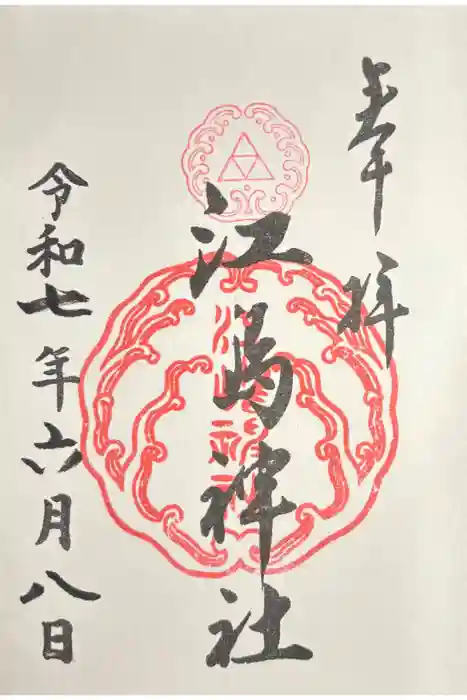 奉拝
江島神社
令和七年六月八日